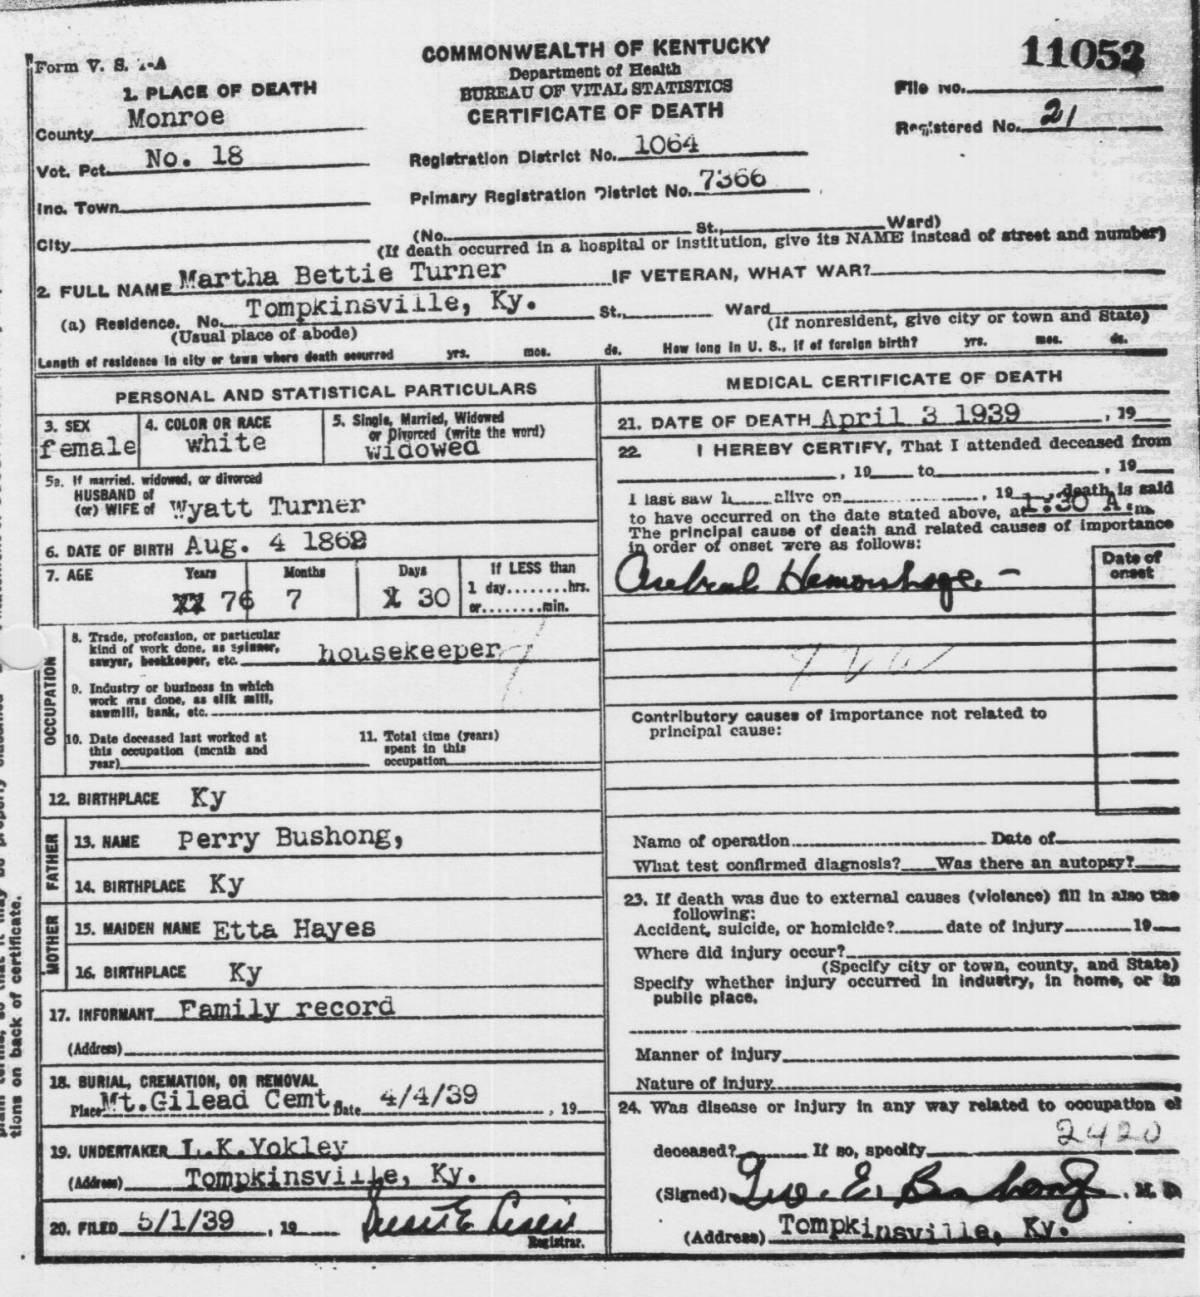 Form V. S. 1-A
COMMONWEALTH OF KENTUCKY
Department of Health
BUREAU OF VITAL STATISTICS
CERTIFICATE OF DEATH
11053
File No.
Registered No. 21
1. PLACE OF DEATH
County Monroe
Vot. Pct. No. 18
Inc. Town
City
Registration District No. 1064
Primary Registration District No. 7366
(No. St., Ward)
(If death occurred in a hospital or institution, give its NAME instead of street and number)
2. FULL NAME Martha Bettie Turner IF VETERAN, WHAT WAR?
(a) Residence. No. Tompkinsville, Ky. St., Ward
(Usual place of abode) (If nonresident, give city or town and State)
Length of residence in city or town where death occurred yrs. mos. ds. How long in U. S., if of foreign birth? yrs. mos. ds.
PERSONAL AND STATISTICAL PARTICULARS
3. SEX
female
4. COLOR OR RACE
white
5. Single, Married, Widowed
or Divorced (write the word)
widowed
5a. If married, widowed, or divorced
HUSBAND of
(or) WIFE of Wyatt Turner
6. DATE OF BIRTH Aug. 4 1862
7. AGE Years Months Days If LESS than
76 7 30 1 day........hrs.
or........min.
OCCUPATION
8. Trade, profession, or particular
kind of work done, as spinner,
sawyer, bookkeeper, etc. housekeeper
9. Industry or business in which
work was done, as silk mill,
sawmill, bank, etc.
10. Date deceased last worked at
this occupation (month and
year)
11. Total time (years)
spent in this
occupation
12. BIRTHPLACE Ky
FATHER
13. NAME Perry Bushong,
14. BIRTHPLACE Ky
MOTHER
15. MAIDEN NAME Etta Hayes
16. BIRTHPLACE Ky
17. INFORMANT Family record
(Address)
18. BURIAL, CREMATION, OR REMOVAL
Place Mt.Gilead Cemt. Date 4/4/39, 19
19. UNDERTAKER L.K.Yokley
(Address) Tompkinsville, Ky.
20. FILED 5/1/39, 19
Registrar.
MEDICAL CERTIFICATE OF DEATH
21. DATE OF DEATH April 3 1939, 19
22. I HEREBY CERTIFY, That I attended deceased from
, 19 to , 19
I last saw h alive on , 19 , death is said
to have occurred on the date stated above, at 1:30 A.m.
The principal cause of death and related causes of importance
in order of onset were as follows:
Date of
onset
Cerebral Hemorrhage. -
Contributory causes of importance not related to
principal cause:
Name of operation Date of
What test confirmed diagnosis? Was there an autopsy?
23. If death was due to external causes (violence) fill in also the
following:
Accident, suicide, or homicide? date of injury 19
Where did injury occur?
(Specify city or town, county, and State)
Specify whether injury occurred in industry, in home, or in
public place.
Manner of injury
Nature of injury
24. Was disease or injury in any way related to occupation of
2420
deceased? If so, specify
(Signed) Geo. E. Bushong, M. D.
(Address) Tompkinsville, Ky.
tions on back of certificate.